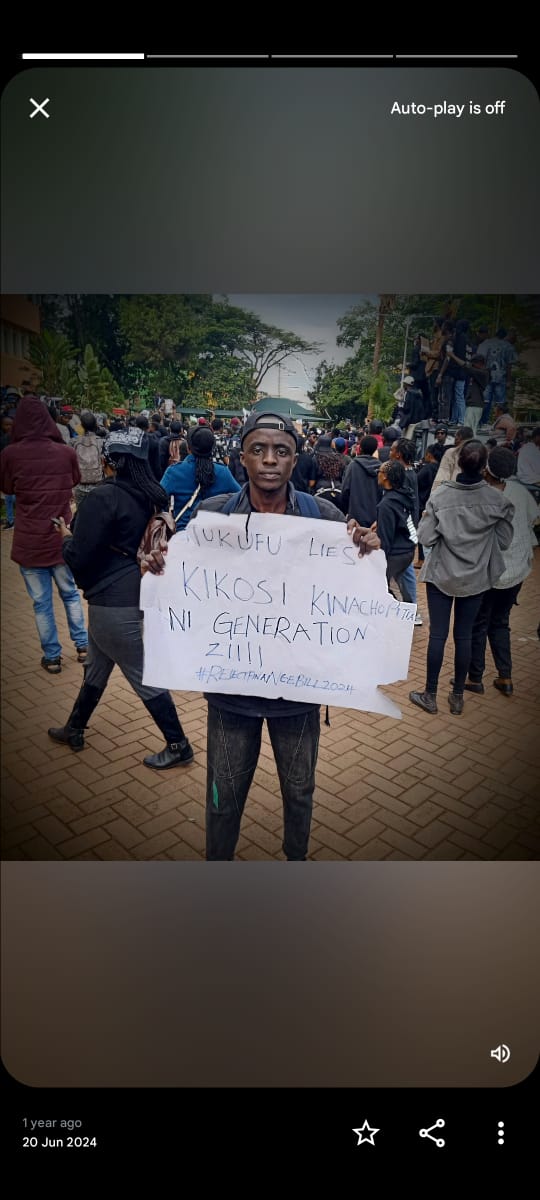 Auto-play is off
UKUFU LIES
KIKOSI KINACHO
NI GENERATION
ZIIII
#REJECTFINANCEBILL2024
1 year ago
20 Jun 2024